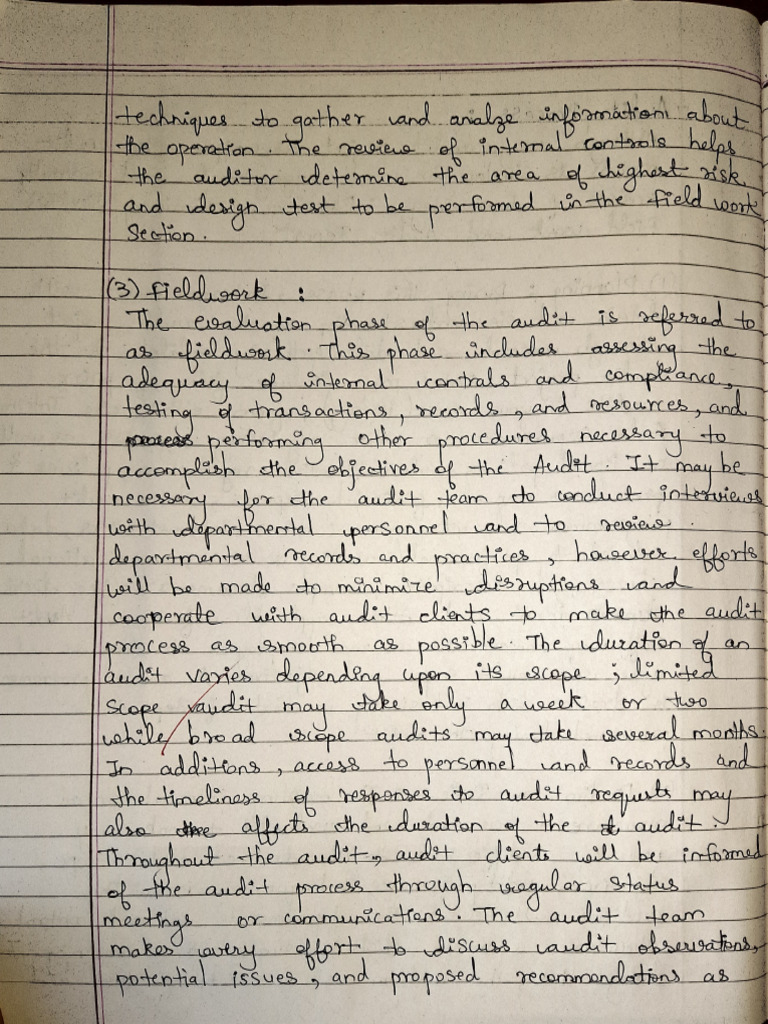 techniques to gather and analze information about
the operation. The review of internal controls helps
the auditor determine the area of highest risk
and design test to be performed in the field work
Section.
(3) fieldwork :
The evaluation phase of the audit is referred to
as fieldwork. This phase includes assessing the
adequacy of internal controls and compliance,
testing of transactions, records, and resources, and
performing other procedures necessary to
accomplish the objectives of the Audit. It may be
necessary for the audit team to conduct interviews
with departmental personnel and to review
departmental records and practices, however efforts
will be made to minimize disruptions and
cooperate with audit clients to make the audit
process as smooth as possible. The duration of an
audit varies depending upon its scope ; limited
scope audit may take only a week or two
while broad scope audits may take several months.
In additions, access to personnel and records and
the timeliness of responses to audit requests may
also affects the duration of the audit.
Throughout the audit, audit clients will be informed
of the audit process through regular status
meetings or communications. The audit team
makes every effort to discuss audit observations,
potential issues, and proposed recommendations as